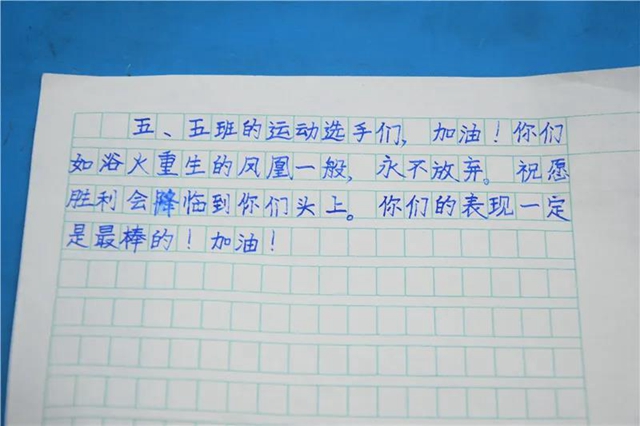 五、五班的运动选手们，加油！你们
如浴火重生的凤凰一般，永不放弃。祝愿
胜利会降临到你们头上。你们的表现一定
是最棒的！加油！